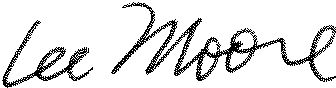 Lee Moore